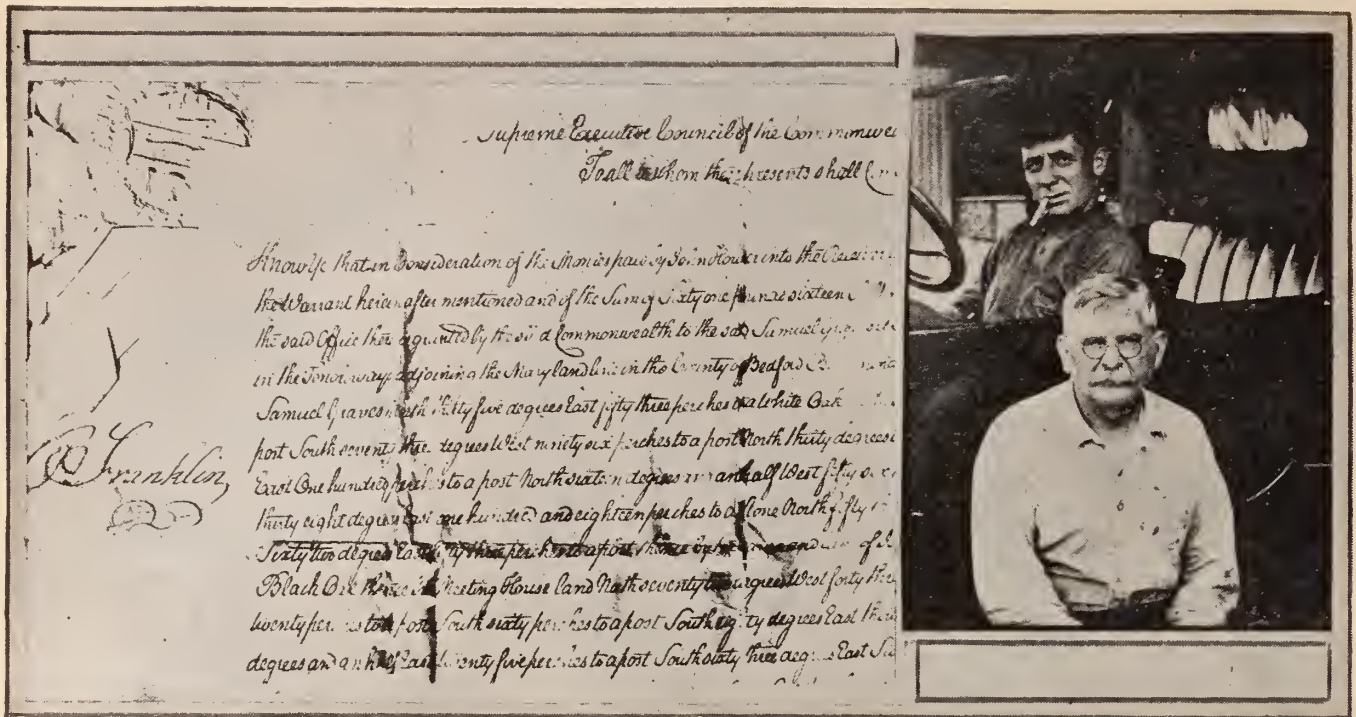 Supreme Executive Council of the Commonwe
To all to whom these presents shall Com
Know Ye that in Consideration of the Monies paid by John Howser into the
the Warrant herein after mentioned and of the Sum of Sixty one pounds sixteen
the said Office there is granted by the said Commonwealth to the said Samuel
in the Township adjoining the Maryland line in the County of Bedford
Samuel Graves North thirty five degrees East fifty three perches to a White Oak
post South seventy three degrees West ninety six perches to a post North thirty degrees
East One hundred perches to a post North sixteen degrees and an half West fifty
thirty eight degrees East one hundred and eighteen perches to a Stone North fifty
Franklin,
Sixty two degrees East three perches to a post thence by and of
Black Oak thence Meeting House land North seventy two degrees West forty
twenty perches to a post South sixty perches to a post South eighty degrees East
degrees and an half East twenty five perches to a post South sixty three degrees East